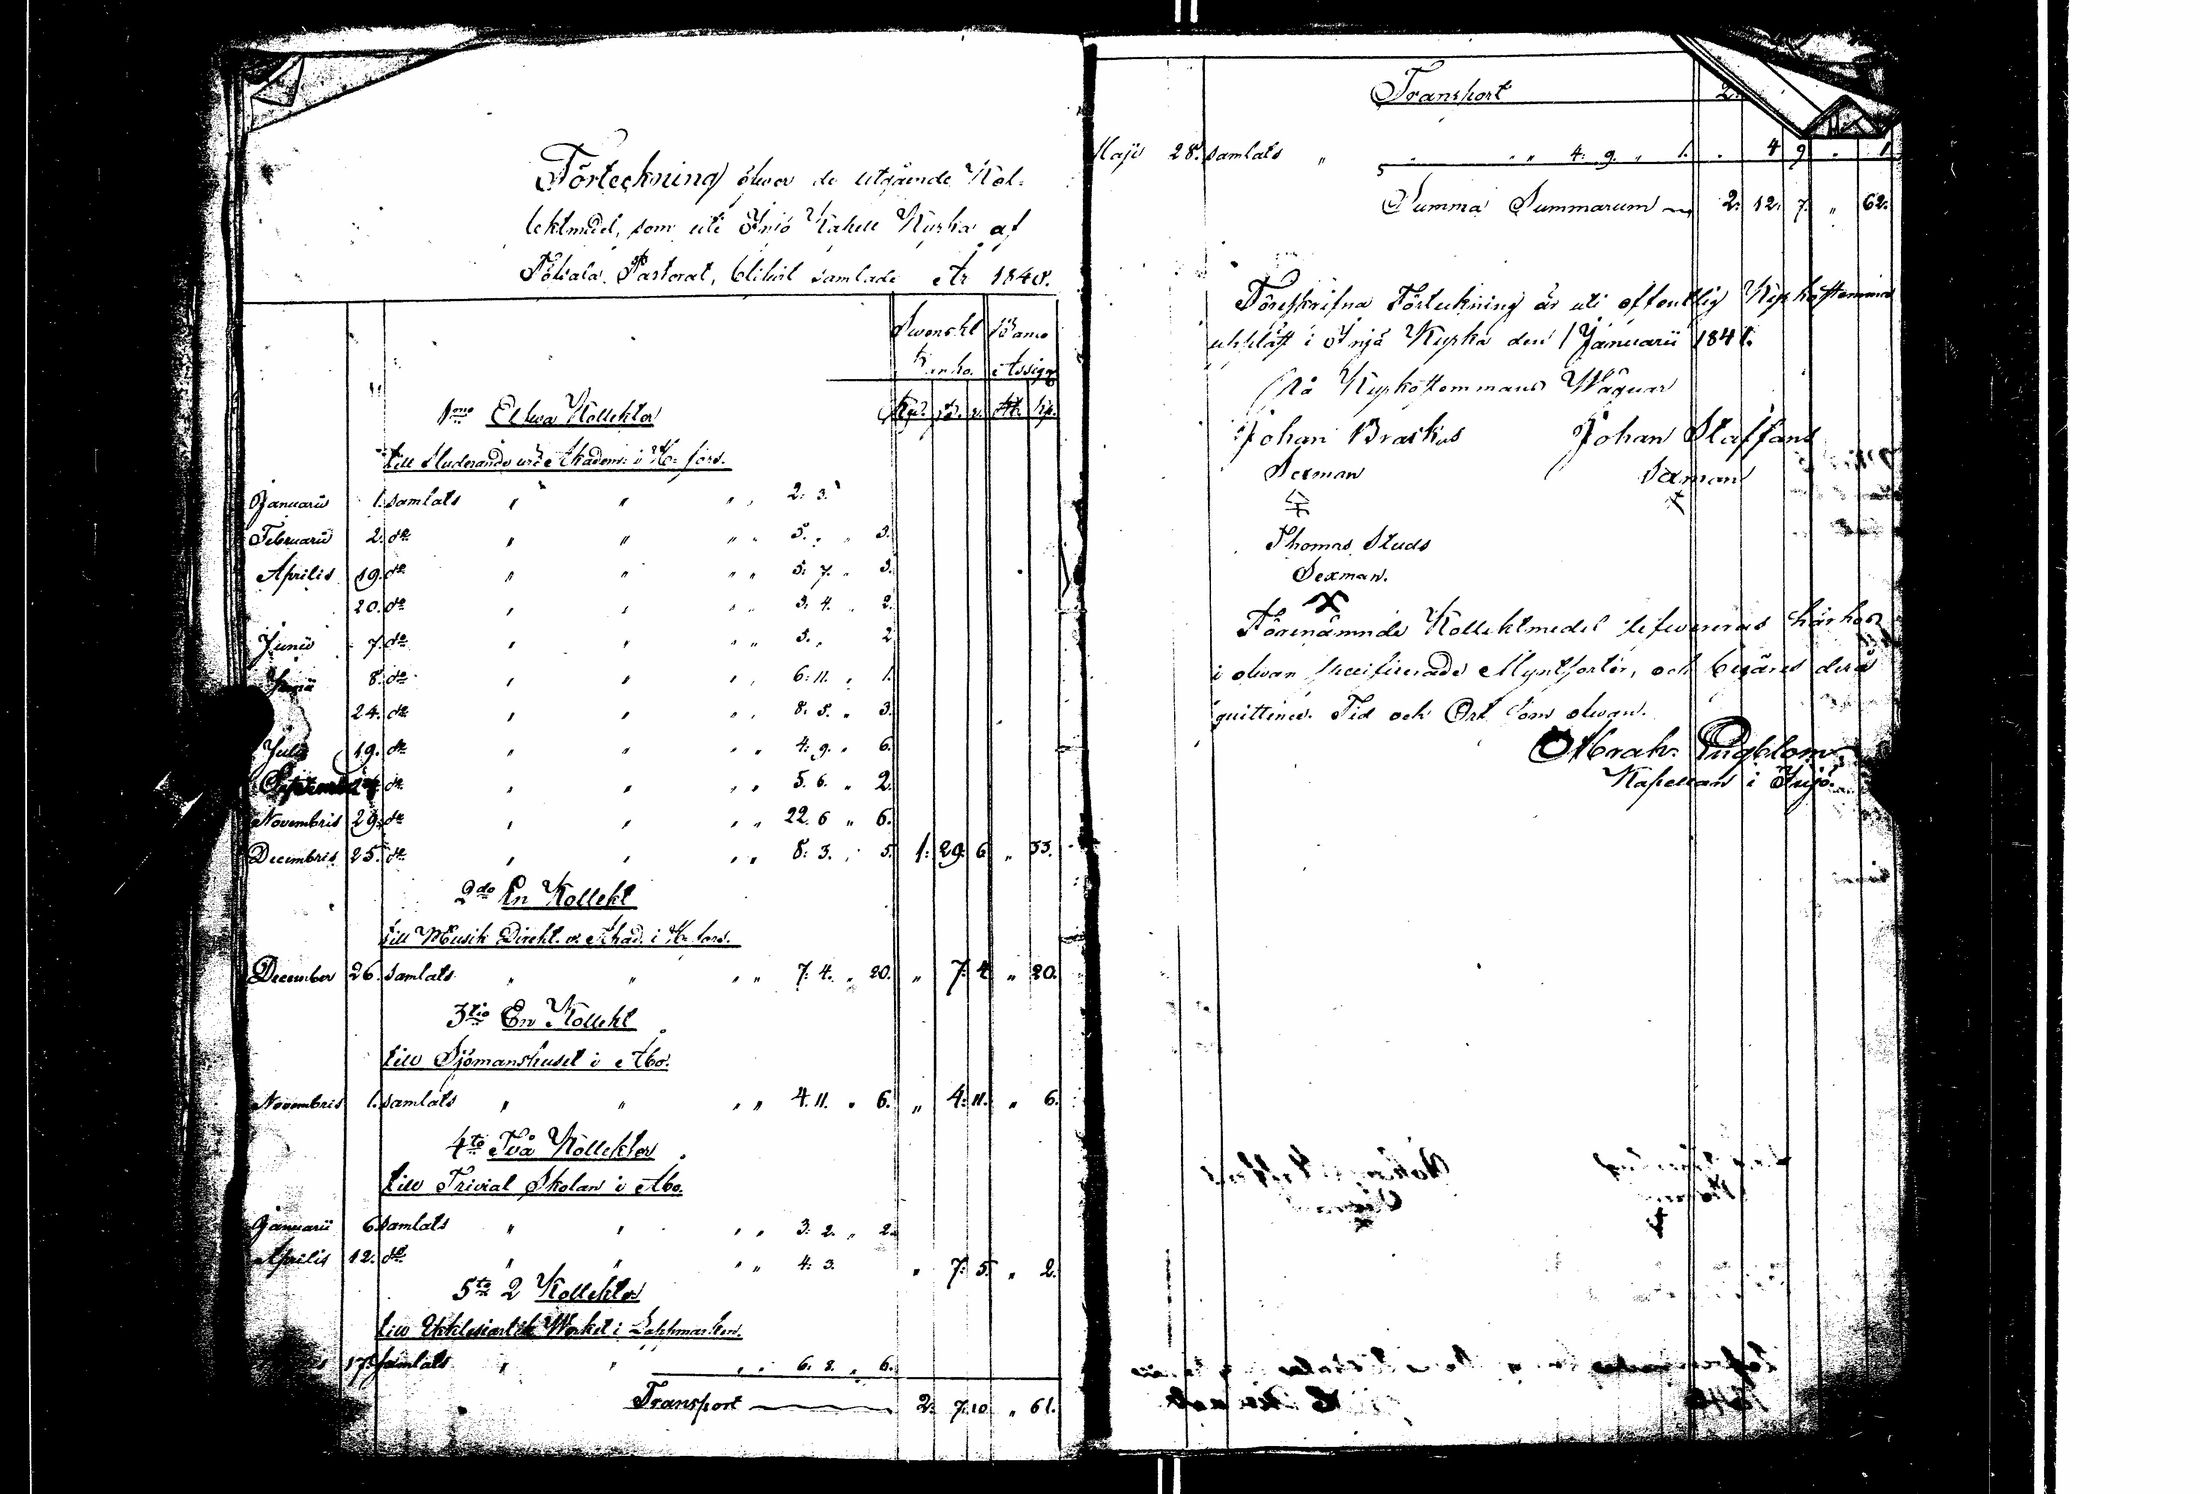 Förteckning öfwer de utgående Kol-
lektmedel, som uti Iniö Kapell Kyrka af
Pastorat, blifwit samlade År 1840.
Swenskt Banco
Assign.
1mo Elfwa Kollekter
till Studerande wid Akadem: i H:fors.
Januarii 1. samlats " " " " 2: 3.
Februarii 2. do " " " " 5. " " 3.
Aprilis 19. do " " " " 5. 7. " 3.
20. do " " " " 3. 4. " 2.
Junii 7. do " " " " 3. " 2
8. do " " " " 6: 11. " 1.
24. do " " " " 8. 5. " 3.
Julii 19. do " " " " 4: 9. " 6.
do " " " " 5. 6. " 2.
Novembris 29. do " " " " 22. 6 " 6.
Decembris 25. do " " " " 8: 3. " 5. 1: 29. 6 " 33.
2do En Kollekt
till Musik Direkt. w. Akad. i H:fors.
December 26. samlats " " " " 7: 4. " 20. " 7: 4 " 20.
3tio En Kollekt
till Sjömanshuset i Åbo.
Novembris 1. samlats " " " " 4. 11. " 6. " 4: 11. " 6.
4to Två Kollekter
till Trivial Skolan i Åbo.
Januarii 6. samlats " " " " 3. 2. " 2.
Aprilis 12. do " " " " 4: 3. " 7: 5. " 2.
5to 2 Kollekter
till Ekklesiastik Werket i Lappmarken.
17. samlats " " " " 6: 8. " 6.
Transport 2: 7. 10 " 61.
Transport 2.
Maji 28. samlats " " " " 4: 9. " 1. " 4 9 " 1.
Summa Summarum 2: 12. 7. " 62.
Föreskrifna Förteckning är uti offentlig Kyrkostemma
uppläst i Iniö Kyrka den 1 Januarii 1841.
På Kyrkostemmans Wägnar
Johan Braskus Johan Staffans
Sexman Sexman
Thomas Studs
Sexman.
Förenämnde Kollektmedel lefwereras härhos
i ofwan specificerade Myntsorter, och begäres derå
quittence. Tid och Ort som ofwan.
Abrah: Engblom
Kapellan i Iniö.